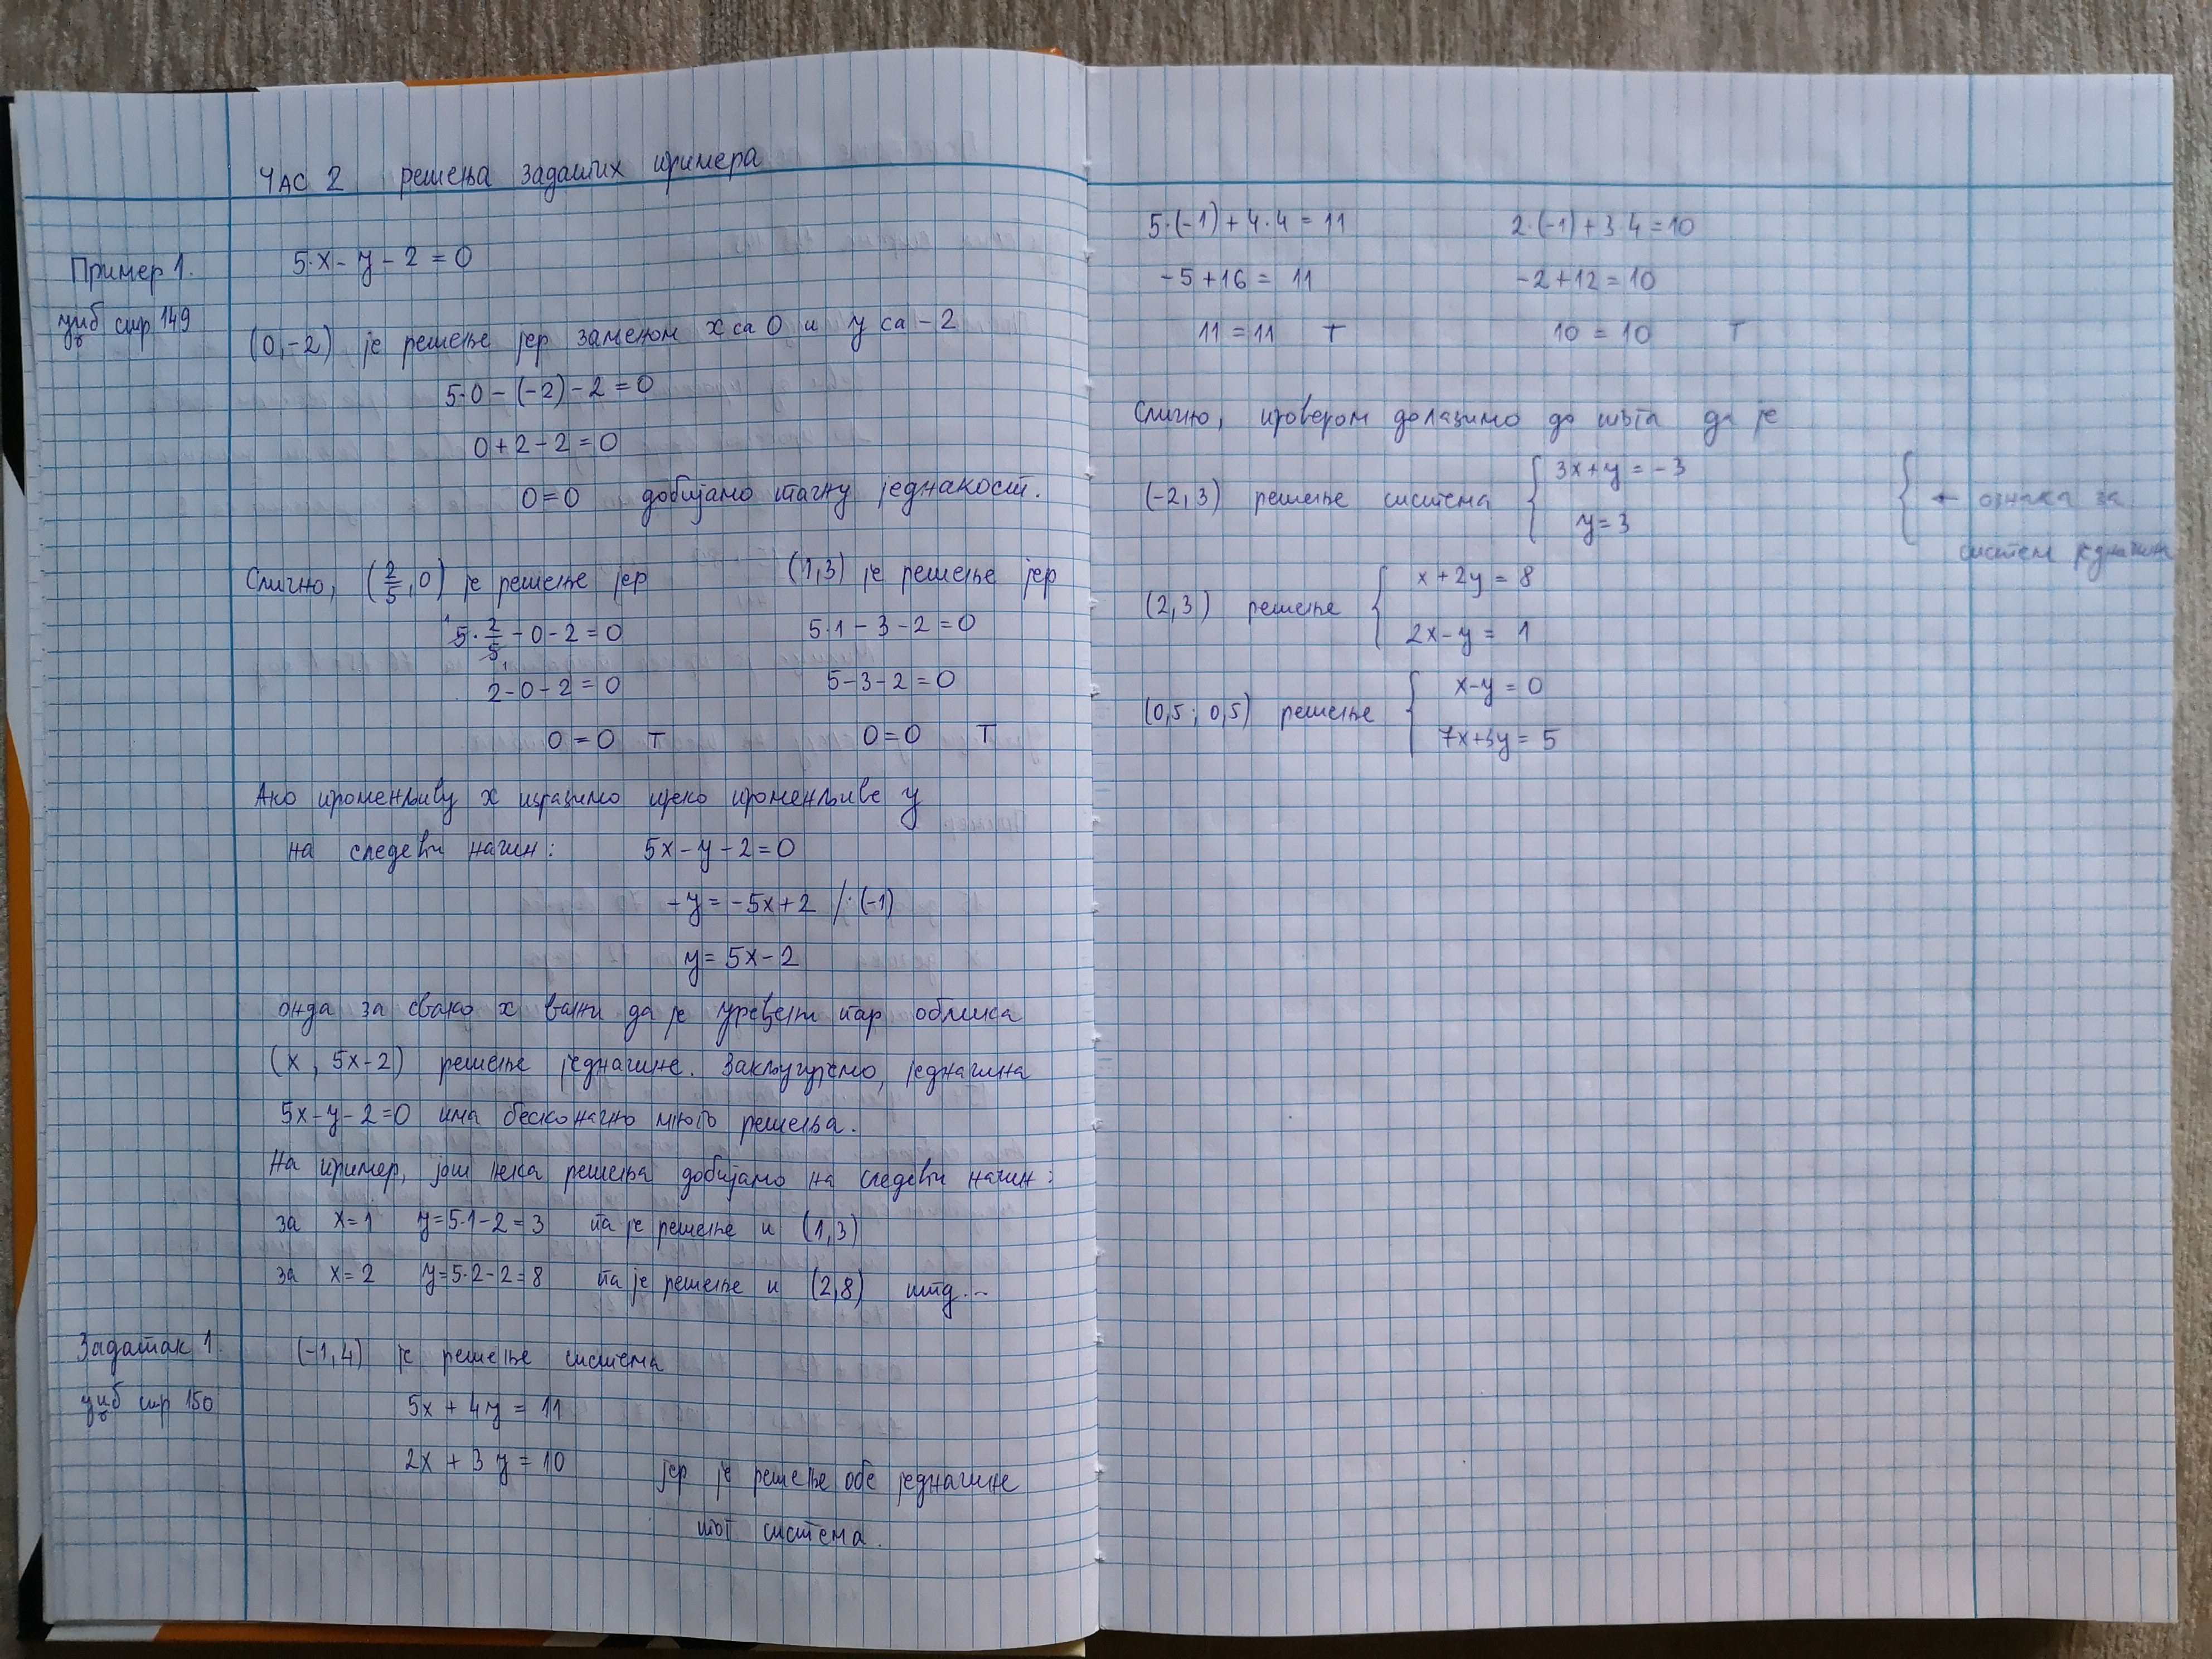 ЧАС 2 решења задатих примера
Пример 1.
5·x - y - 2 = 0
уџб стр 149
(0, -2) је решење јер заменом x са 0 и y са -2
5·0 - (-2) - 2 = 0
0 + 2 - 2 = 0
0 = 0 добијамо тачну једнакост.
Слично, (2/5, 0) је решење јер
(1,3) је решење јер
5·2/5 - 0 - 2 = 0
5·1 - 3 - 2 = 0
2 - 0 - 2 = 0
5 - 3 - 2 = 0
0 = 0 T
0 = 0 T
Ако променљиву x изразимо преко променљиве y
на следећи начин: 5x - y - 2 = 0
-y = -5x + 2 /·(-1)
y = 5x - 2
онда за свако x важи да је уређени пар облика
(x, 5x-2) решење једначине. Закључујемо, једначина
5x - y - 2 = 0 има бесконачно много решења.
На пример, још нека решења добијамо на следећи начин:
за x = 1 y = 5·1 - 2 = 3 па је решење и (1,3)
за x = 2 y = 5·2 - 2 = 8 па је решење и (2,8) итд...
Задатак 1.
уџб стр 150
(-1,4) је решење система
5x + 4y = 11
2x + 3y = 10 јер је решење обе једначине
тог система.
5·(-1) + 4·4 = 11
2·(-1) + 3·4 = 10
-5 + 16 = 11
-2 + 12 = 10
11 = 11 T
10 = 10 T
Слично, провером долазимо до тога да је
(-2, 3) решење система { 3x + y = -3
y = 3
{ ← ознака за
систем једначина
(2,3) решење { x + 2y = 8
2x - y = 1
(0,5; 0,5) решење { x - y = 0
7x + 3y = 5